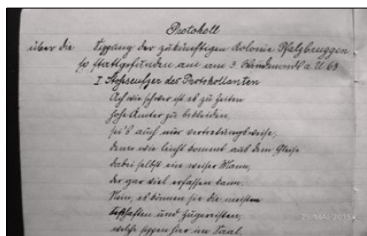 Protokoll
über die Sippung der zukünftigen Kolonie Pfalzbruggen
so stattgefunden am am 3 a. U. 68
I Stoßseufzer des Protokollanten
Ach wie schwer ist es zu Zeiten
hohe Ämter zu bekleiden,
sei's auch nur vertretungsweise,
denn wie leicht kommt aus dem Gleise
dabei selbst ein weiser Mann,
der gar viel erfassen kann.
Nein, es können sie die meisten
und
welche sippen hier im Saal.
25/MAI/2015